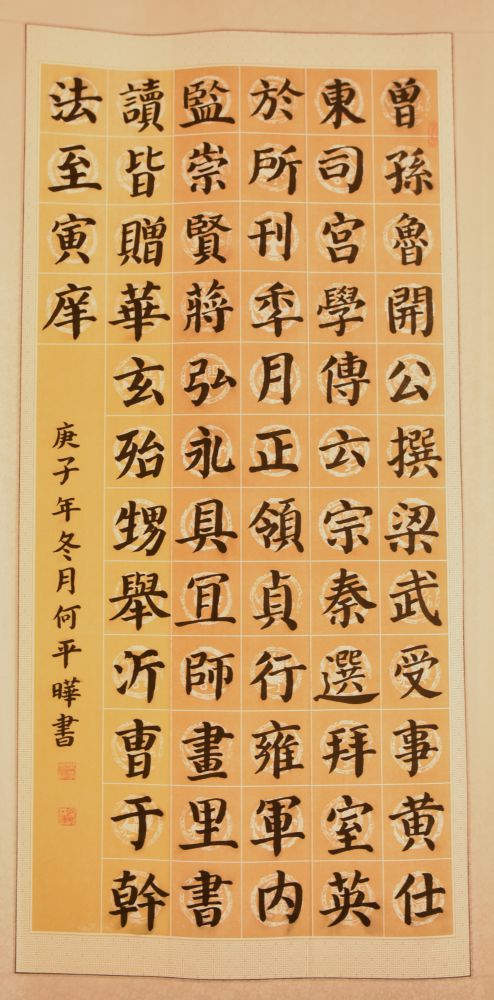 曾孫魯開公撰梁武受事黄仕
東司宫學傳六宗秦選拜室英
於所刊秊月正領貞行雍軍内
監崇賢蔣弘永具冝師畫里書
讀皆贈華玄殆甥舉沂曺于幹
法至寅庠
庚子年冬月何平曄書